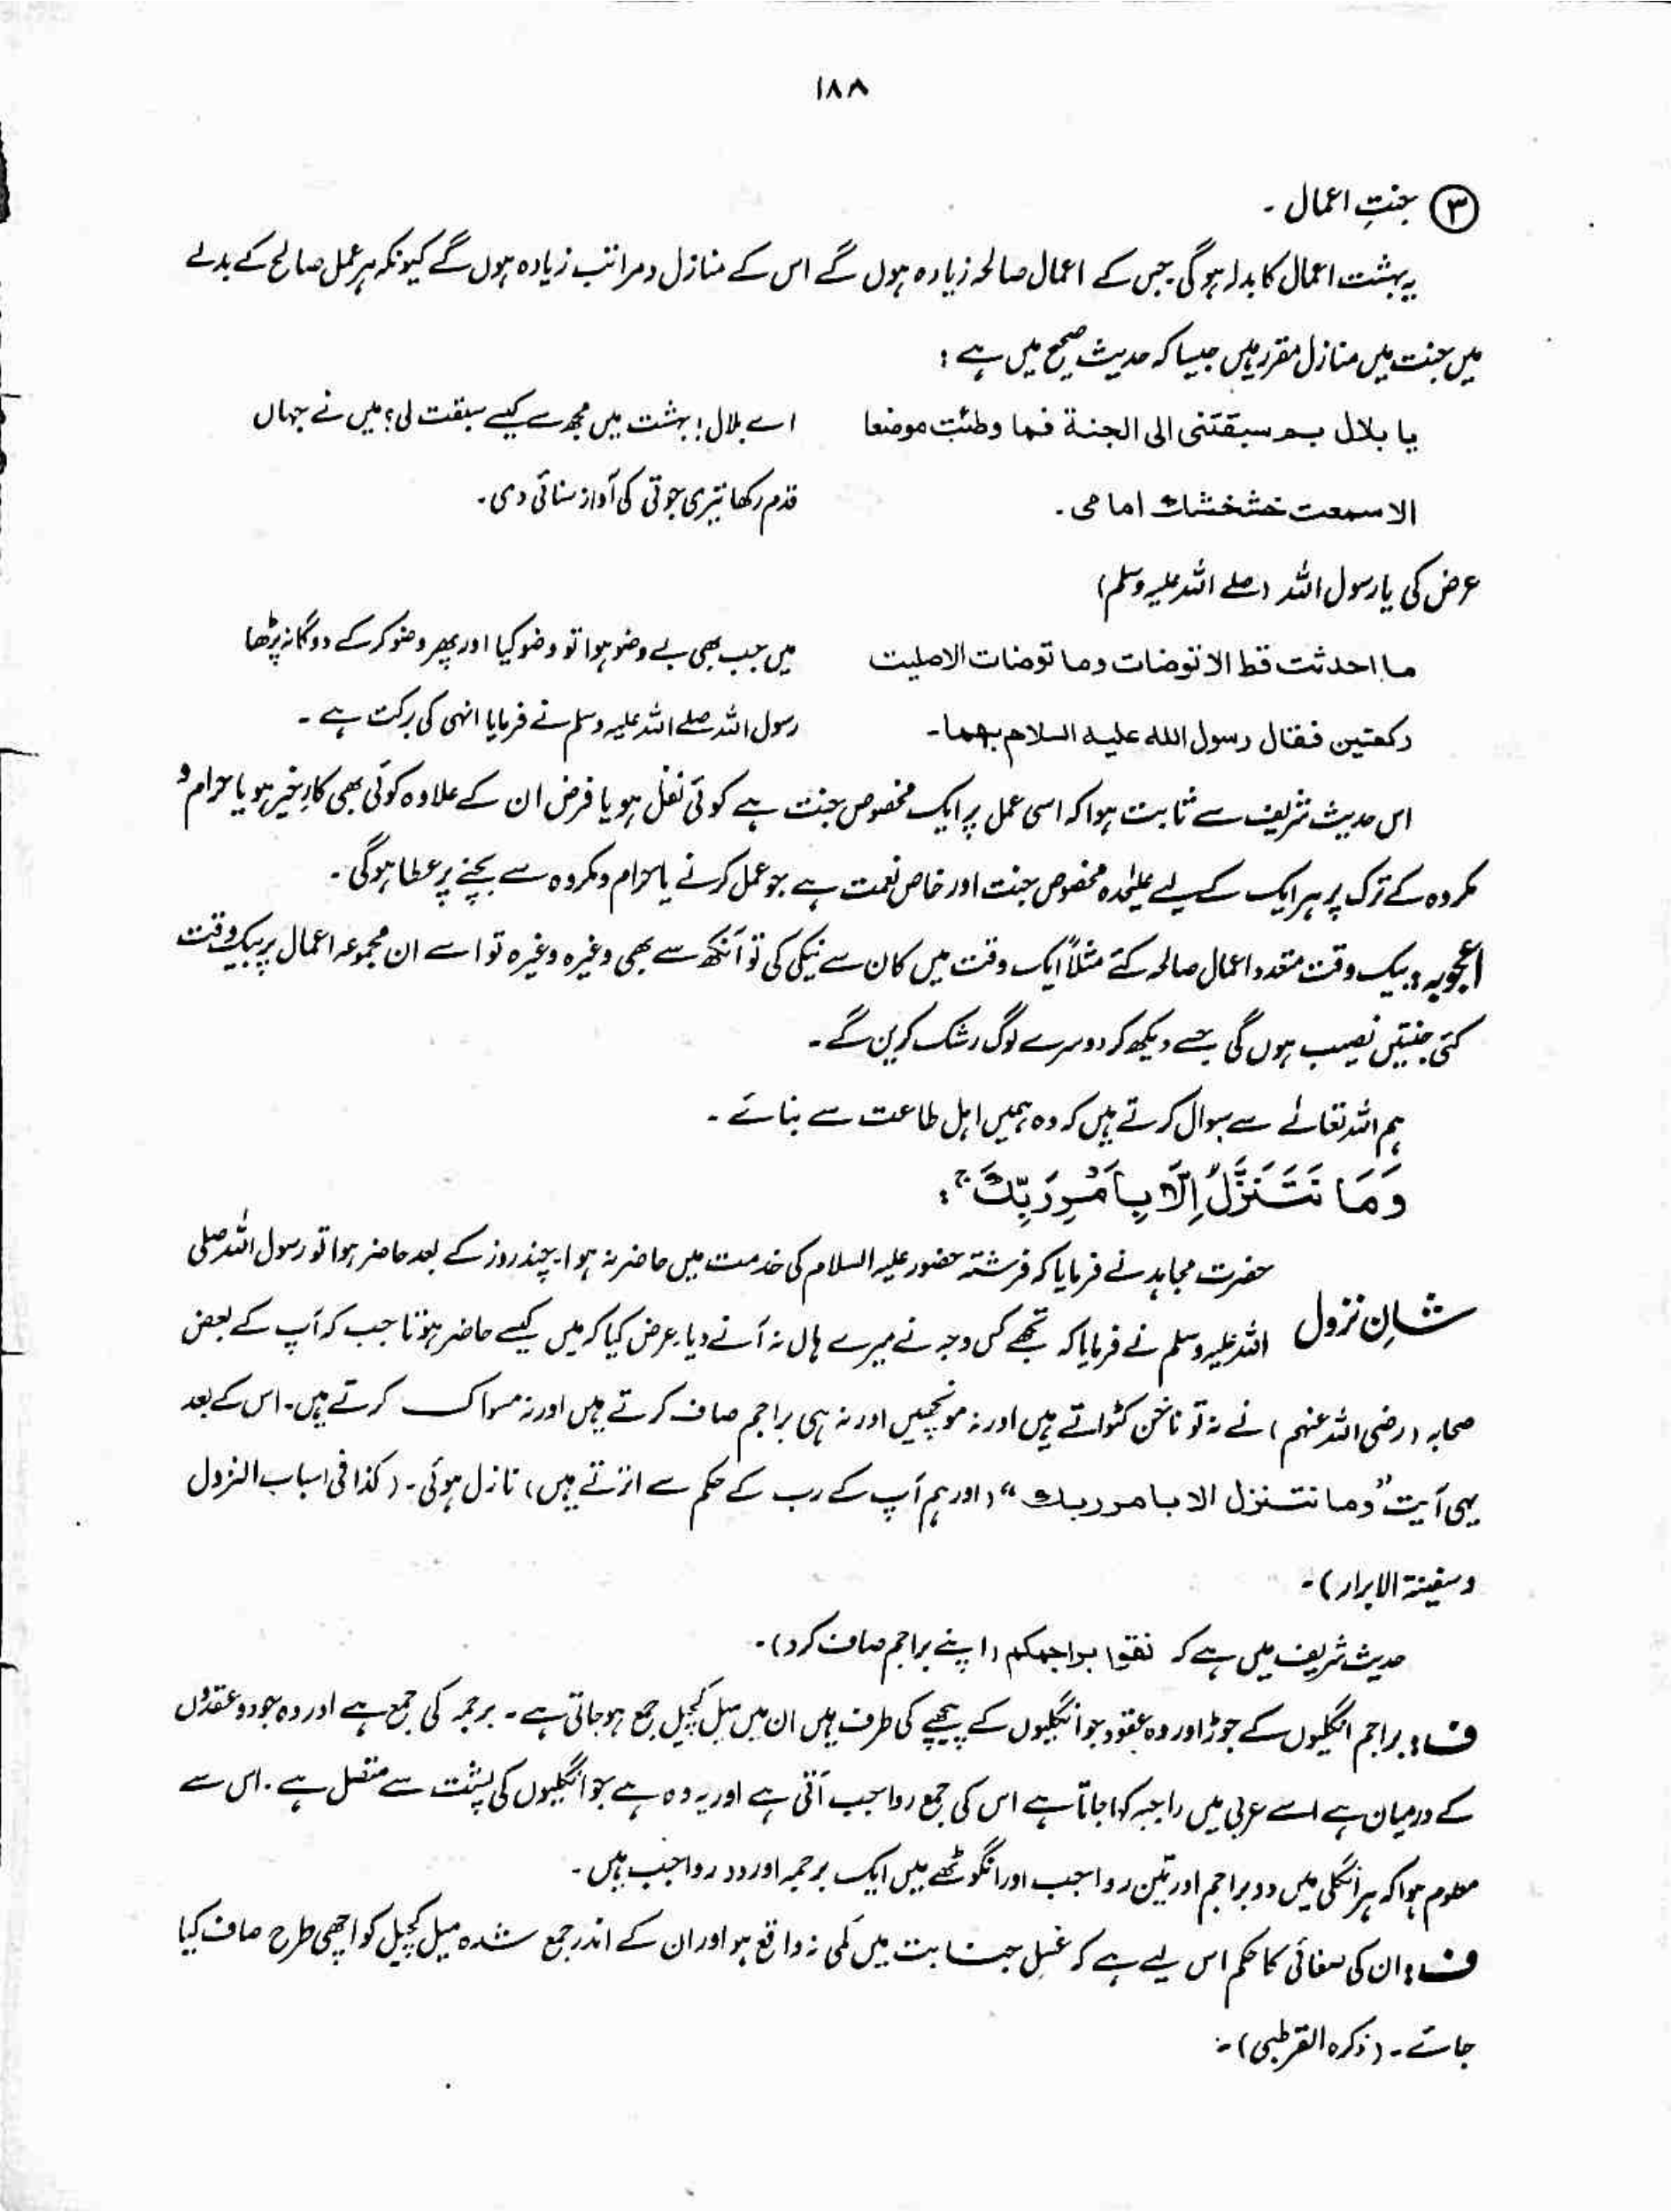 ۱۸۸
③ جنتِ اعمال ۔
یہ بہشت اعمال کا بدلہ ہوگی جس کے اعمال صالحہ زیادہ ہوں گے اس کے منازل و مراتب زیادہ ہوں گے کیونکہ ہر عمل صالح کے بدلے
میں جنت میں منازل مقرر ہیں جیسا کہ حدیث صحیح میں ہے :
یا بلال بم سبقتنی الی الجنة فما وطئت موضعا اے بلال! بہشت میں مجھ سے کیسے سبقت لی؟ میں نے جہاں
الا سمعت خشخشک امامی ۔ قدم رکھا تیری جوتی کی آواز سنائی دی ۔
عرض کی یا رسول اللہ (صلے اللہ علیہ وسلم)
ما احدثت قط الا توضات وما توضات الا صلیت میں جب بھی بے وضو ہوا تو وضو کیا اور پھر وضو کرکے دوگانہ پڑھا
رکعتین فقال رسول الله علیہ السلام بھما۔ رسول اللہ صلے اللہ علیہ وسلم نے فرمایا انہی کی برکت ہے ۔
اس حدیث شریف سے ثابت ہوا کہ اسی عمل پر ایک مخصوص جنت ہے کوئی نفل ہو یا فرض ان کے علاوہ کوئی بھی کارِ خیر ہو یا حرام و
مکروہ کے ترک پر ہر ایک کے لیے علیٰحدہ مخصوص جنت اور خاص نعمت ہے جو عمل کرنے یا حرام و مکروہ سے بچنے پر عطا ہوگی ۔
اعجوبہ : بیک وقت متعدد اعمال صالحہ کئے مثلاً ایک وقت میں کان سے نیکی کی تو آنکھ سے بھی وغیرہ وغیرہ تو اسے ان مجموعہ اعمال پر بیک وقت
کئی جنتیں نصیب ہوں گی جسے دیکھ کر دوسرے لوگ رشک کریں گے ۔
ہم اللہ تعالےٰ سے سوال کرتے ہیں کہ وہ ہمیں اہل طاعت سے بنائے ۔
وَمَا نَتَنَزَّلُ اِلَّا بِاَمْرِ رَبِّكَ ۚ :
حضرت مجاہد نے فرمایا کہ فرشتہ حضور علیہ السلام کی خدمت میں حاضر نہ ہوا۔ چند روز کے بعد حاضر ہوا تو رسول اللہ صلی
شانِ نزول اللہ علیہ وسلم نے فرمایا کہ تجھے کس وجہ نے میرے ہاں نہ آنے دیا۔ عرض کیا کہ میں کیسے حاضر ہوتا جب کہ آپ کے بعض
صحابہ (رضی اللہ عنہم) نے نہ تو ناخن کٹواتے ہیں اور نہ مونچھیں اور نہ ہی براجم صاف کرتے ہیں اور نہ مسواک کرتے ہیں۔ اس کے بعد
یہی آیت "وما نتنزل الا بامر ربک" (اور ہم آپ کے رب کے حکم سے اترتے ہیں) نازل ہوئی۔ (کذا فی اسباب النزول
وسفینۃ الابرار)۔
حدیث شریف میں ہے کہ نقوا براجمکم (اپنے براجم صاف کرو)۔
ف : براجم انگلیوں کے جوڑ اور وہ عقود جو انگلیوں کے پیچھے کی طرف ہیں ان میں میل کچیل جمع ہوجاتی ہے ۔ برجمہ کی جمع ہے اور وہ جو دو عقدوں
کے درمیان ہے اسے عربی میں راجبہ کہا جاتا ہے اس کی جمع رواجب آتی ہے اور یہ وہ ہے جو انگلیوں کی پشت سے متصل ہے ۔ اس سے
معلوم ہوا کہ ہر انگلی میں دو براجم اور تین رواجب اور انگوٹھے میں ایک برجمہ اور دو رواجب ہیں ۔
ف : ان کی صفائی کا حکم اس لیے ہے کہ غسل جنابت میں کمی نہ واقع ہو اور ان کے اندر جمع شدہ میل کچیل کو اچھی طرح صاف کیا
جائے ۔ (ذکرہ القرطبی) ۔: